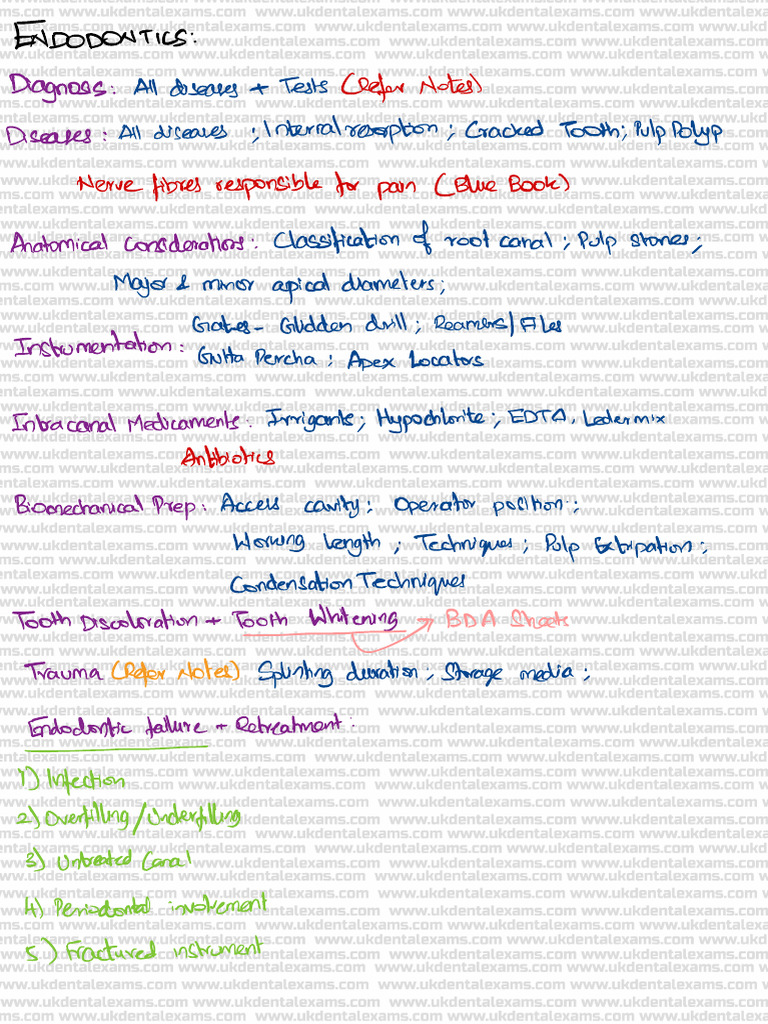 ENDODONTICS:
Diagnosis: All diseases + Tests (Refer Notes)
Diseases: All diseases ; Internal resorption ; Cracked Tooth; Pulp Polyp
Nerve fibres responsible for pain (Blue Book)
Anatomical Considerations: Classification of root canal ; Pulp stones ;
Major & minor apical diameters;
Gates- Glidden drill ; Reamers/Files
Instrumentation: Gutta Percha ; Apex Locators
Intracanal Medicaments: Irrigants; Hypochlorite; EDTA, Ledermix
Antibiotics
Biomechanical Prep: Access cavity; Operator position;
Working length ; Techniques ; Pulp Extirpation ;
Condensation Techniques
Tooth Discoloration + Tooth Whitening → BDA Sheets
Trauma (Refer Notes) Splinting duration ; Storage media ;
Endodontic failure + Retreatment:
1) Infection
2) Overfilling/Underfilling
3) Untreated Canal
4) Periodontal involvement
5) Fractured instrument
www.ukdentalexams.com